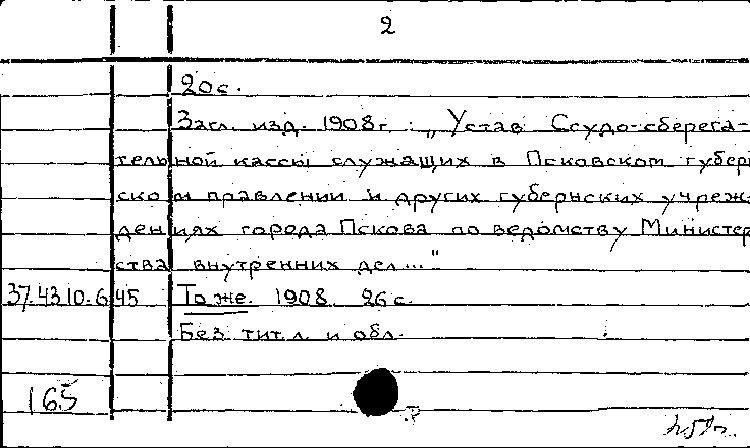 2
20 с.
Загл. изд. 1908 г.: „Устав Ссудо-сберега-
тельной кассы служащих в Псковском губерн
ском правлении и других губернских учреж-
дениях города Пскова по ведомству Министер
ства внутренних дел..."
37.43.10.645 То же. 1908. 26 с.
Без тит. л. и обл.
165